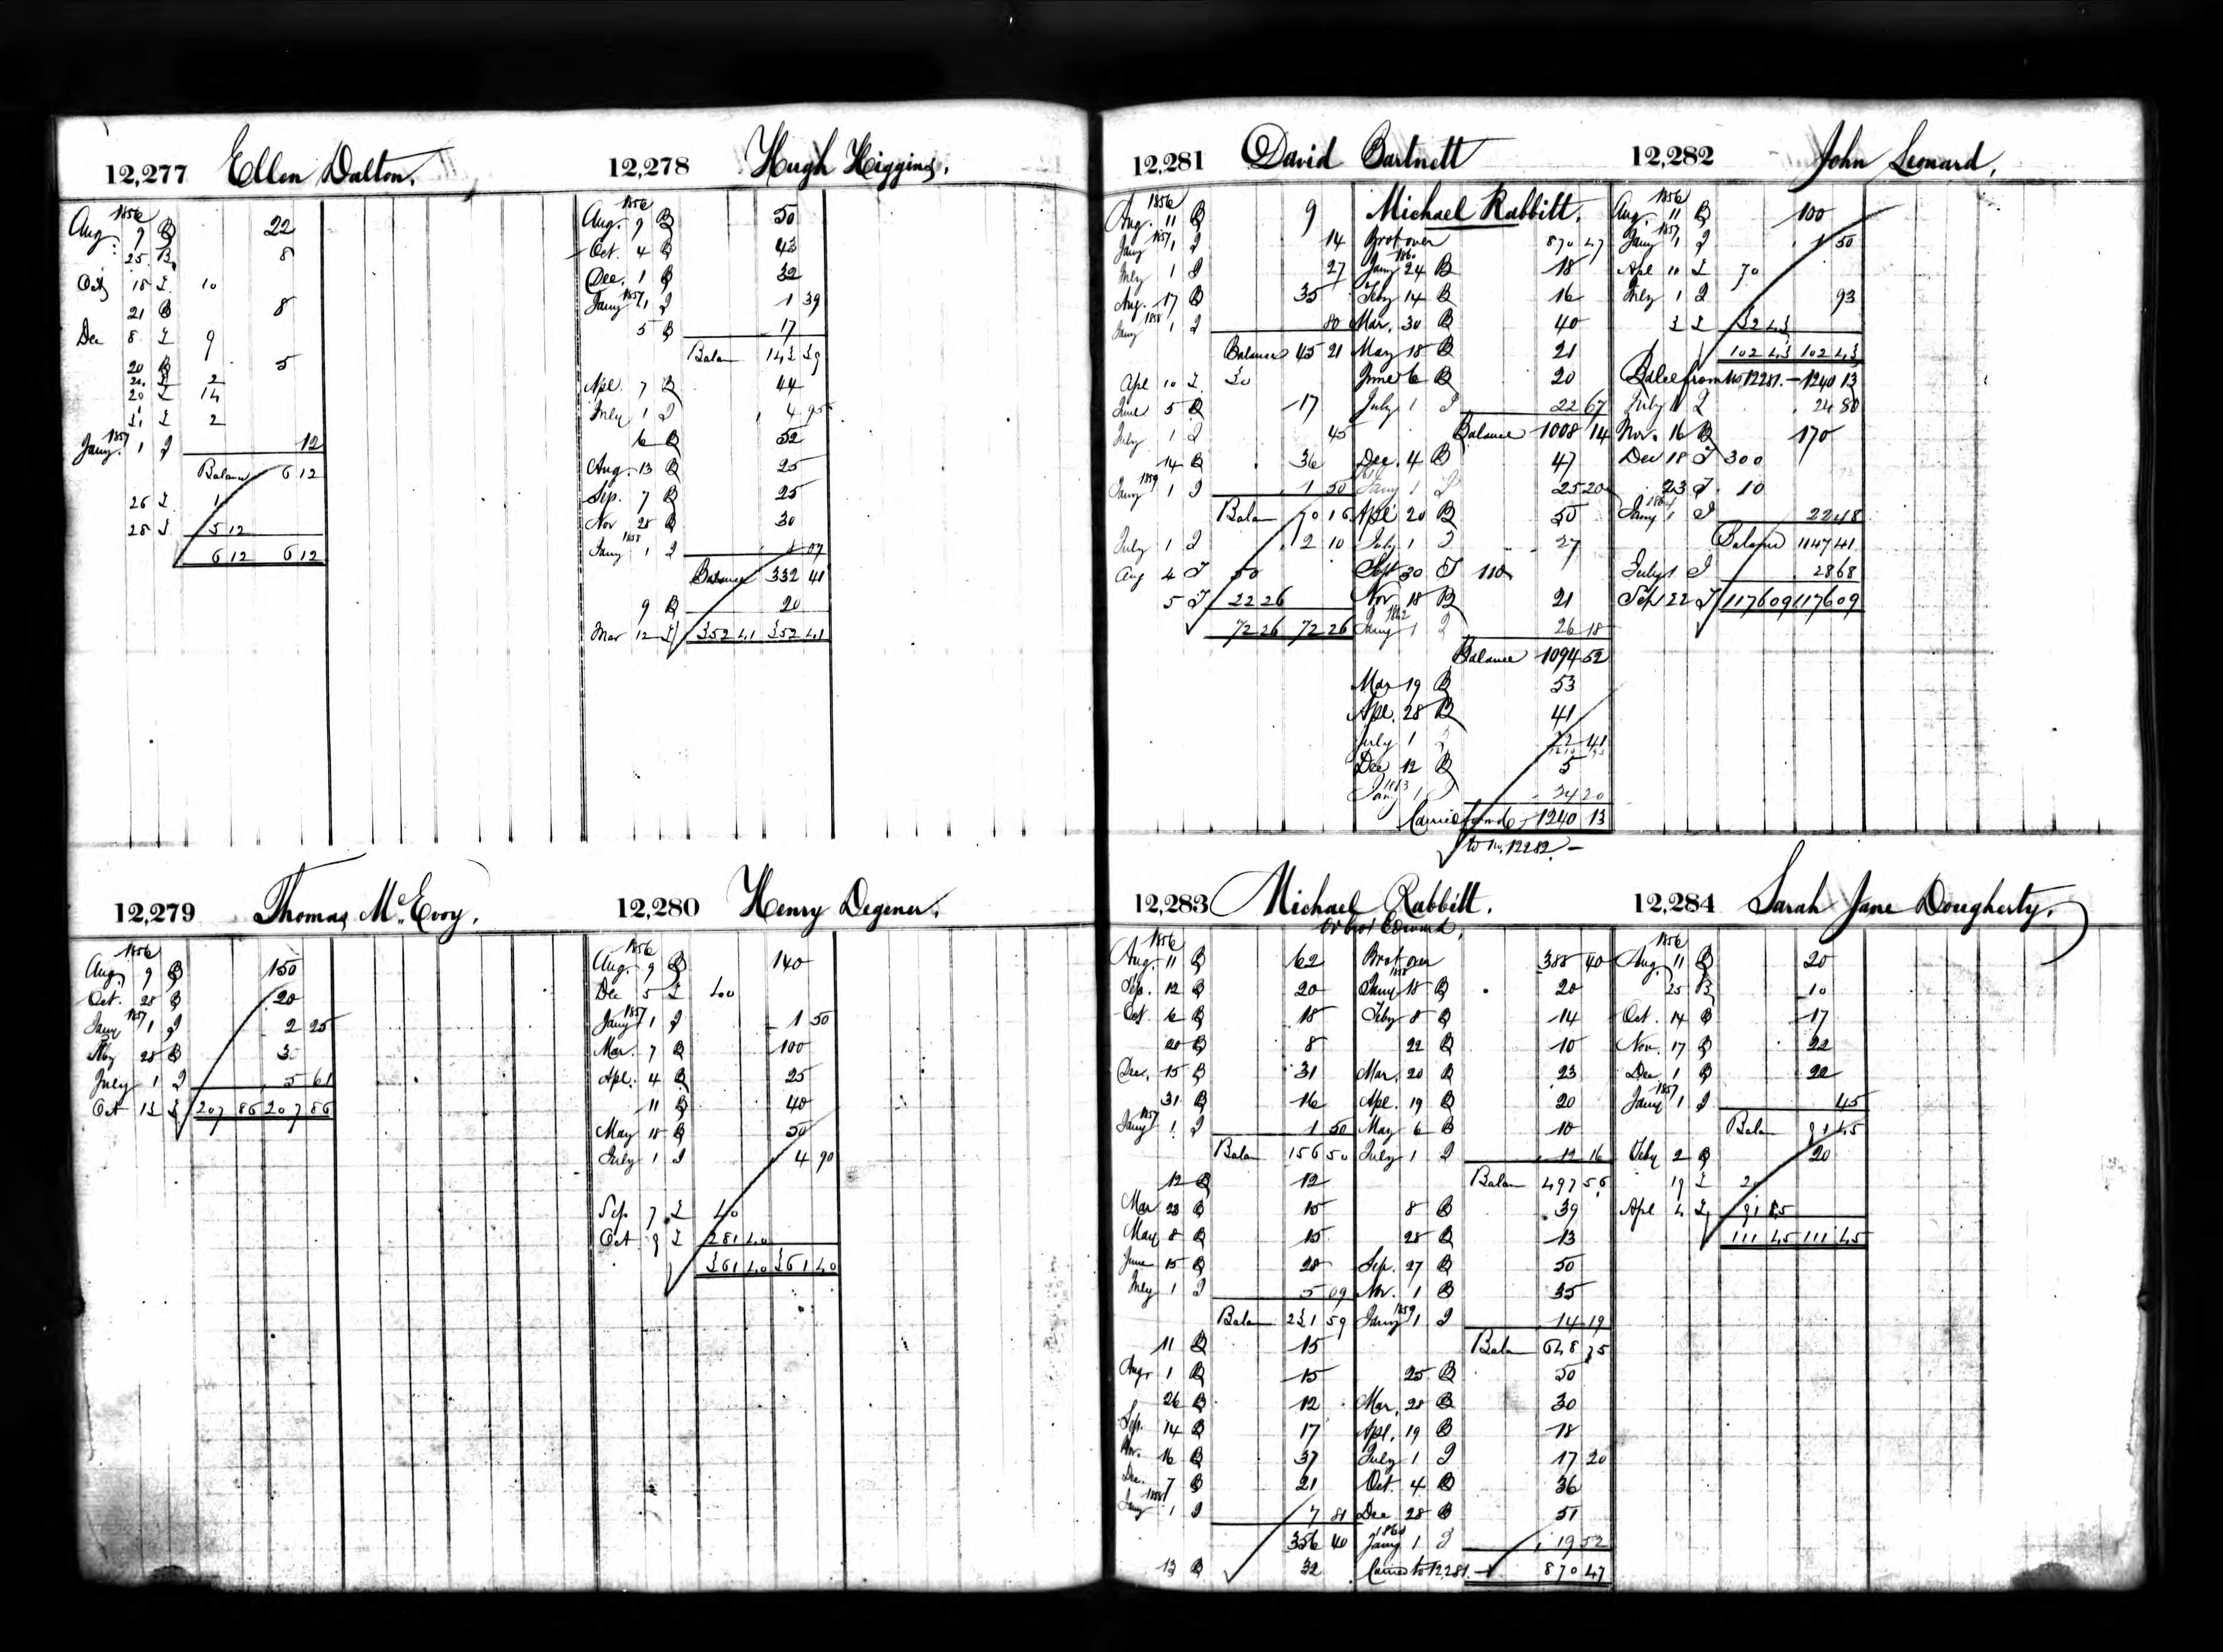 12,277 Ellen Dalton.
1856
Aug. 9 B 22
25 B 8
Oct 18 I 10
21 B 8
Dec 8 I 9
20 B 5
20 I 2
20 I 14
31 I 2
1857
Jany. 1 I 12
Balance 6 12
26 I 1
28 I 5 12
6 12 6 12
12,278 Hugh Higgins.
1856
Aug. 9 B 50
Oct. 4 B 43
Dec. 1 B 32
1857
Jany 1 I 1 39
5 B 17
Balan 143 39
Apl. 7 B 44
July 1 I 4 95
6 B 52
Aug. 13 B 25
Sep. 7 B 25
Nov 28 B 30
1858
Jany 1 I 8 07
Balance 332 41
9 B 20
Mar 12 I 352 41 352 41
12,279 Thomas McEvoy.
1856
Aug. 9 B 150
Oct. 28 B 20
1857
Jany 1 I 2 25
28 B 30
July 1 I 5 61
Oct 13 I 207 86 207 86
12,280 Henry Degener.
1856
Aug. 9 B 140
Dec 5 I 40
1857
Jany 1 I 1 50
Mar. 7 B 100
Apl. 4 B 25
11 B 40
May 18 B 50
July 1 I 4 90
Sep. 7 I 40
Oct 9 I 281 40
361 40 361 40
12,281 David Bartnett
1856
Aug. 11 B 9
1857
Jany 1 I 14
July 1 I 27
Aug. 17 B 35
1858
Jany 1 I 80
Balance 45 21
Apl 10 I 30
June 5 B 17
July 1 I 45
14 B 36
1859
Jany 1 I 1 50
Balan 70 16
July 1 I 2 10
Aug 4 I 50
5 I 22 26
72 26 72 26
Michael Rabbitt.
Brot over 870 47
1860
Jany 24 B 18
Feby 14 B 16
Mar. 30 B 40
May 18 B 21
June 6 B 20
July 1 I 22 67
Balance 1008 14
Dec. 4 B 47
Jany 1 I 25 20
Apl 20 B 50
July 1 I 27
Sept 30 I 110
Nov 18 B 21
1862
Jany 1 I 26 18
Balance 1094 52
Mar 19 B 53
Apl. 28 B 41
July 1
Dec 12 B 5
1863
Jan. 1 I 34 20
Carried forwd 1240 13
to No. 12282.
12,282 John Leonard.
1856
Aug. 11 B 100
1857
Jany 1 I 1 50
Apl 10 I 70
July 1 I 93
3 I 32 43
102 43 102 43
Balce from No. 12281. 1240 13
July 1 I 24 80
Nov. 16 B 170
Dec 18 I 300
23 I 10
1864
Jany 1 I 22 48
Balance 1147 41
July 1 I 28 68
Sep 22 I 1176 09 1176 09
12,283 Michael Rabbitt.
or brot Edward.
1856
Aug. 11 B 62
Sep. 12 B 20
Oct. 6 B 18
20 B 8
Dec. 15 B 31
31 B 16
1857
Jany 1 I 1 50
Balan 156 50
12 B 12
Mar 23 B 15
May 8 B 15
June 15 B 28
July 1 I 5 09
Balan 231 59
11 B 15
Aug. 1 B 15
26 B 12
Sep. 14 B 17
Nov. 16 B 37
Dec. 7 B 21
1858
Jany 1 I 7 81
356 40
13 B 32
Brot over 388 40
1858
Jany 18 B 20
Feby 8 B 14
22 B 10
Mar. 20 B 23
Apl. 19 B 20
May 6 B 10
July 1 I 12 16
Balan 497 56
8 B 39
28 B 13
Sep. 27 B 50
Nov. 1 B 35
1859
Jany 1 I 14 19
Balan 648 75
25 B 50
Mar. 28 B 30
Apl. 19 B 18
July 1 I 17 20
Oct. 4 B 36
Dec 28 B 51
1860
Jany 1 I 19 52
Carried to 12281. 870 47
12,284 Sarah Jane Dougherty.
1856
Aug. 11 B 20
25 B 10
Oct. 14 B 17
Nov. 17 B 22
Dec 1 B 22
1857
Jany 1 I 45
Balan 91 45
Feby 2 B 20
19 I 20
Apl 4 I 91 45
111 45 111 45